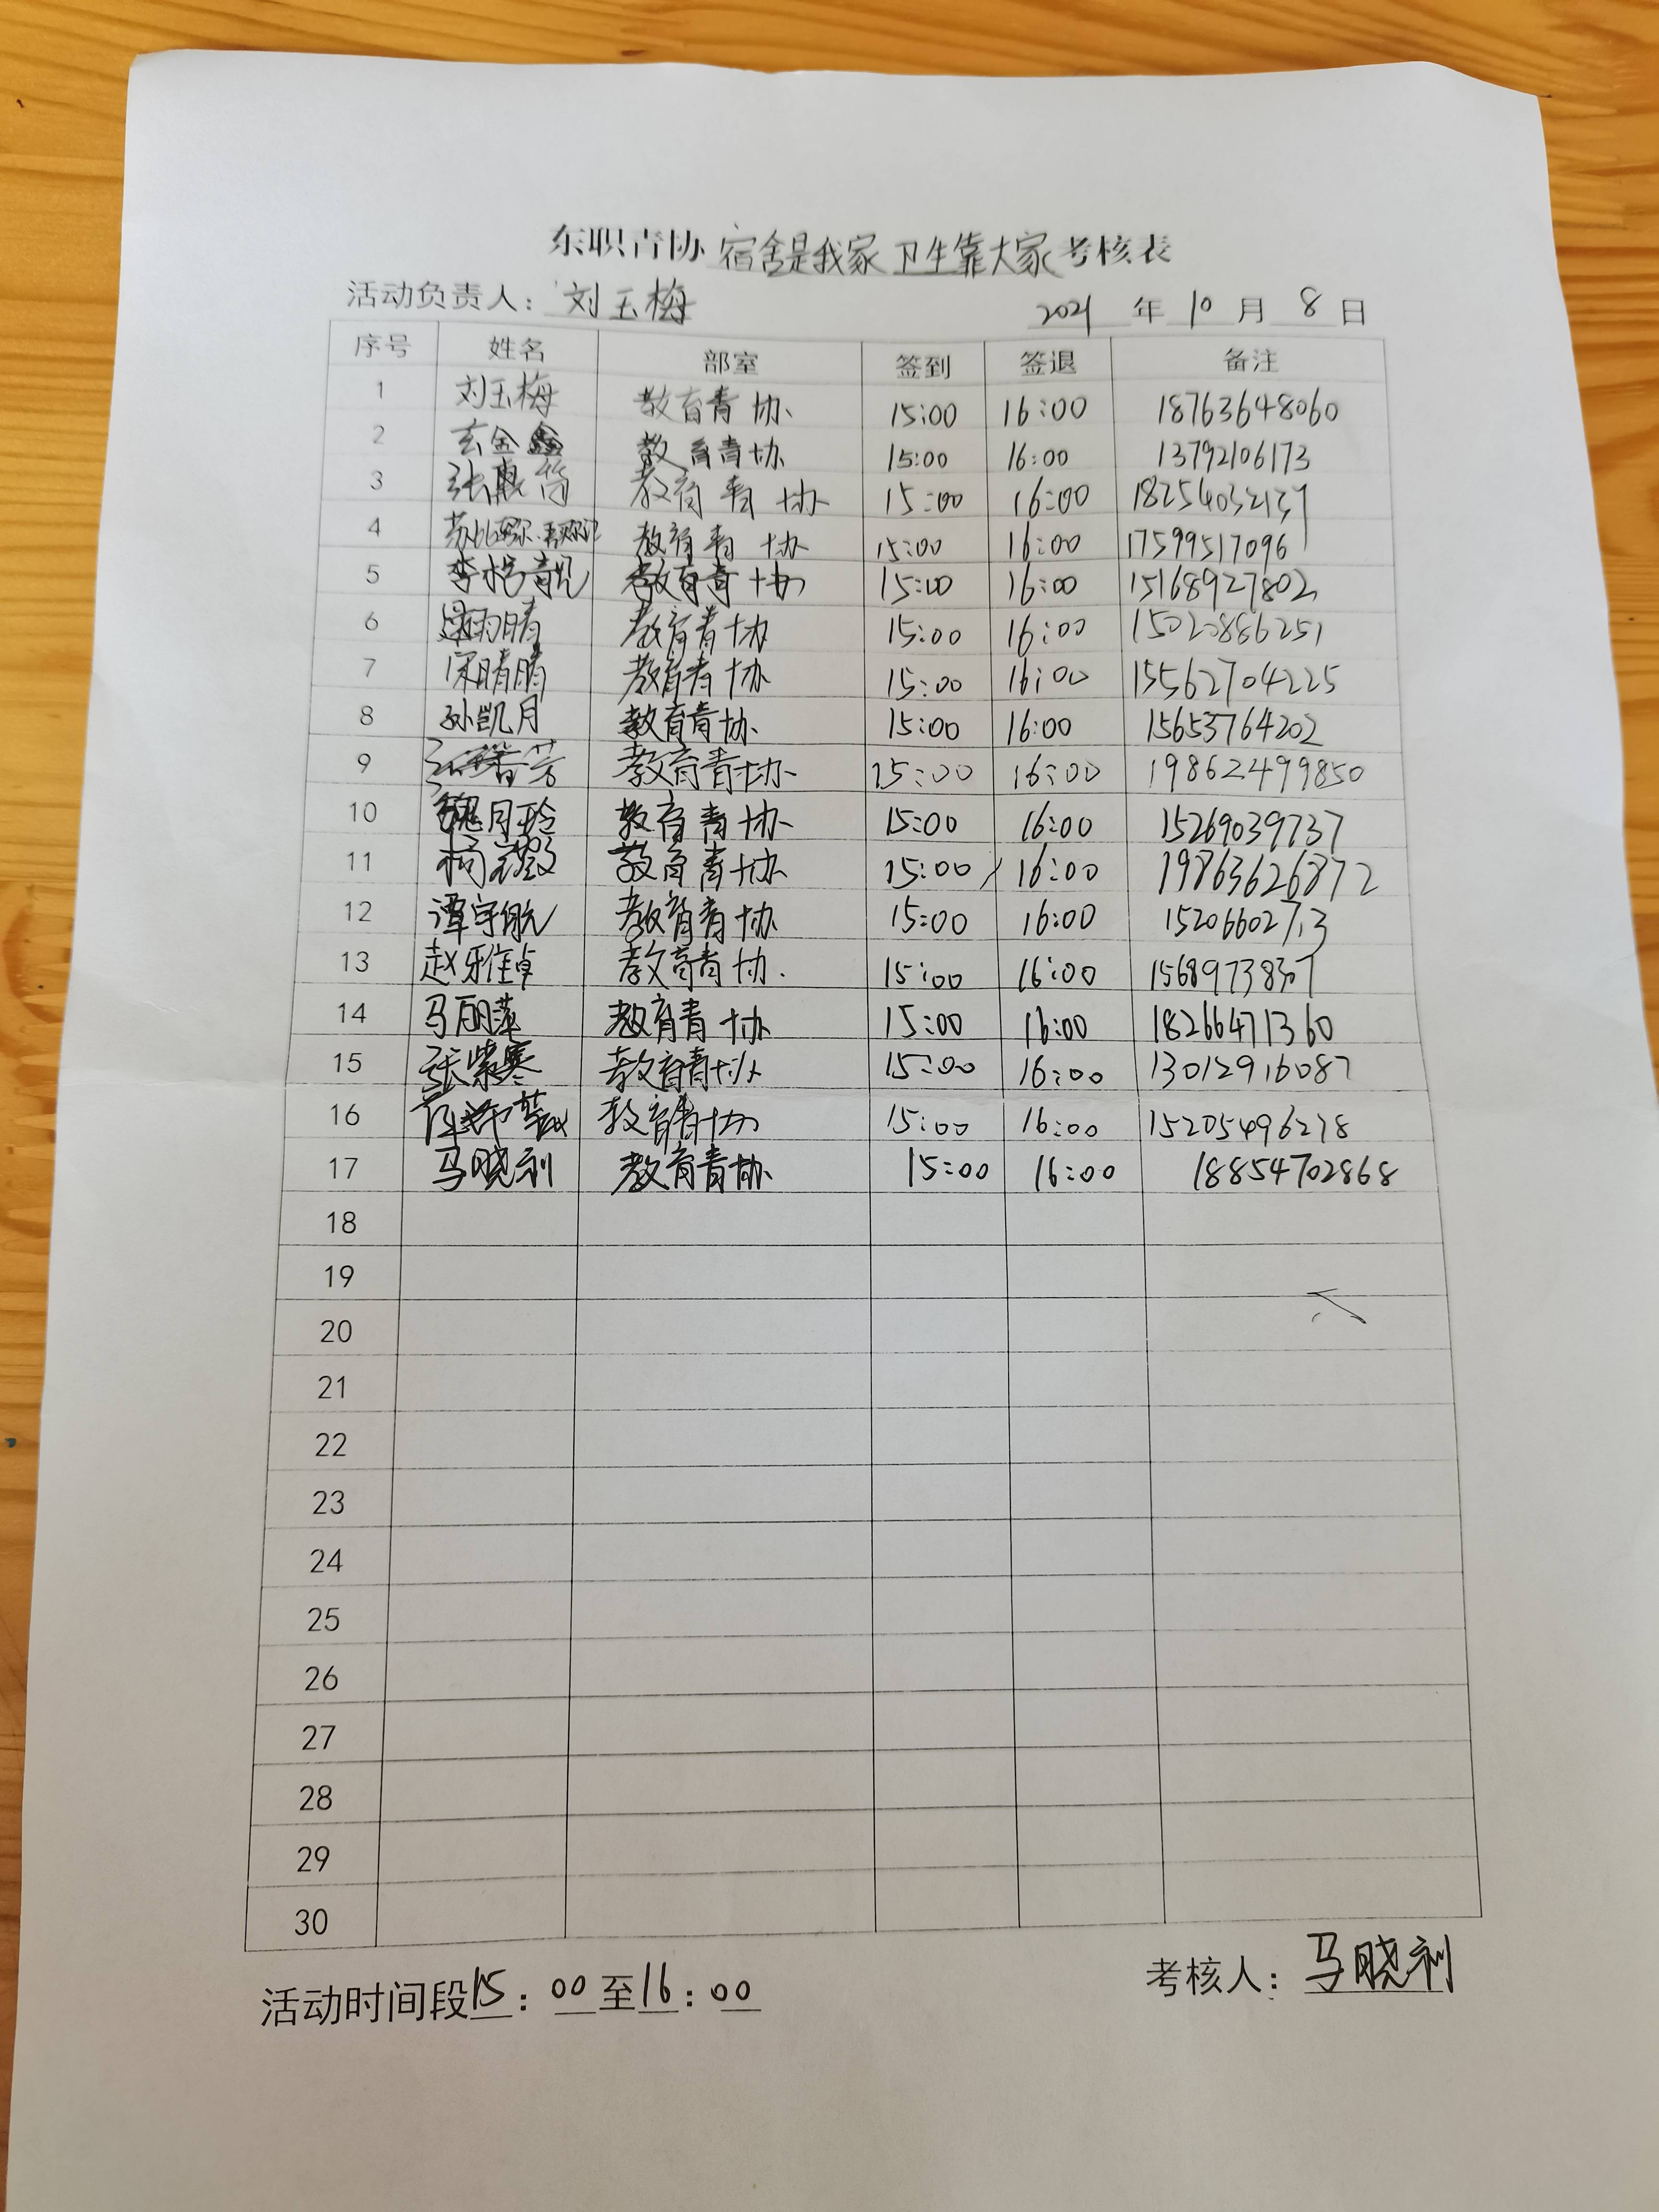 东职青协 宿舍是我家 卫生靠大家 考核表
活动负责人: 刘玉梅 2021 年 10 月 8 日
序号 姓名 部室 签到 签退 备注
1 刘玉梅 教育青协 15:00 16:00 18763648060
2 玄金鑫 教育青协 15:00 16:00 13792106173
3 教育青协 15:00 16:00 18254032137
4 教育青协 15:00 16:00 17599517096
5 教育青协 15:00 16:00 15168927802
6 教育青协 15:00 16:00 15020886251
7 宋晴晴 教育青协 15:00 16:00 15562704225
8 孙凯月 教育青协 15:00 16:00 15653764202
9 教育青协 15:00 16:00 19862499850
10 魏月玲 教育青协 15:00 16:00 15269039737
11 教育青协 15:00 16:00 19863626872
12 谭宇航 教育青协 15:00 16:00 15206602713
13 教育青协 15:00 16:00
14 马丽萍 教育青协 15:00 16:00 18266471360
15 张紫寒 教育青协 15:00 16:00 13012916087
16 教育青协 15:00 16:00 15205496278
17 马晓利 教育青协 15:00 16:00 18854702868
18
19
20
21
22
23
24
25
26
27
28
29
30
活动时间段15:00至16:00 考核人: 马晓利